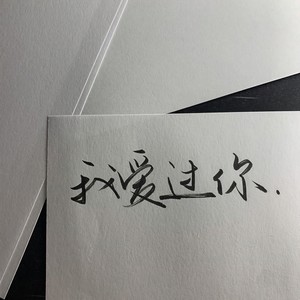 我爱过你.